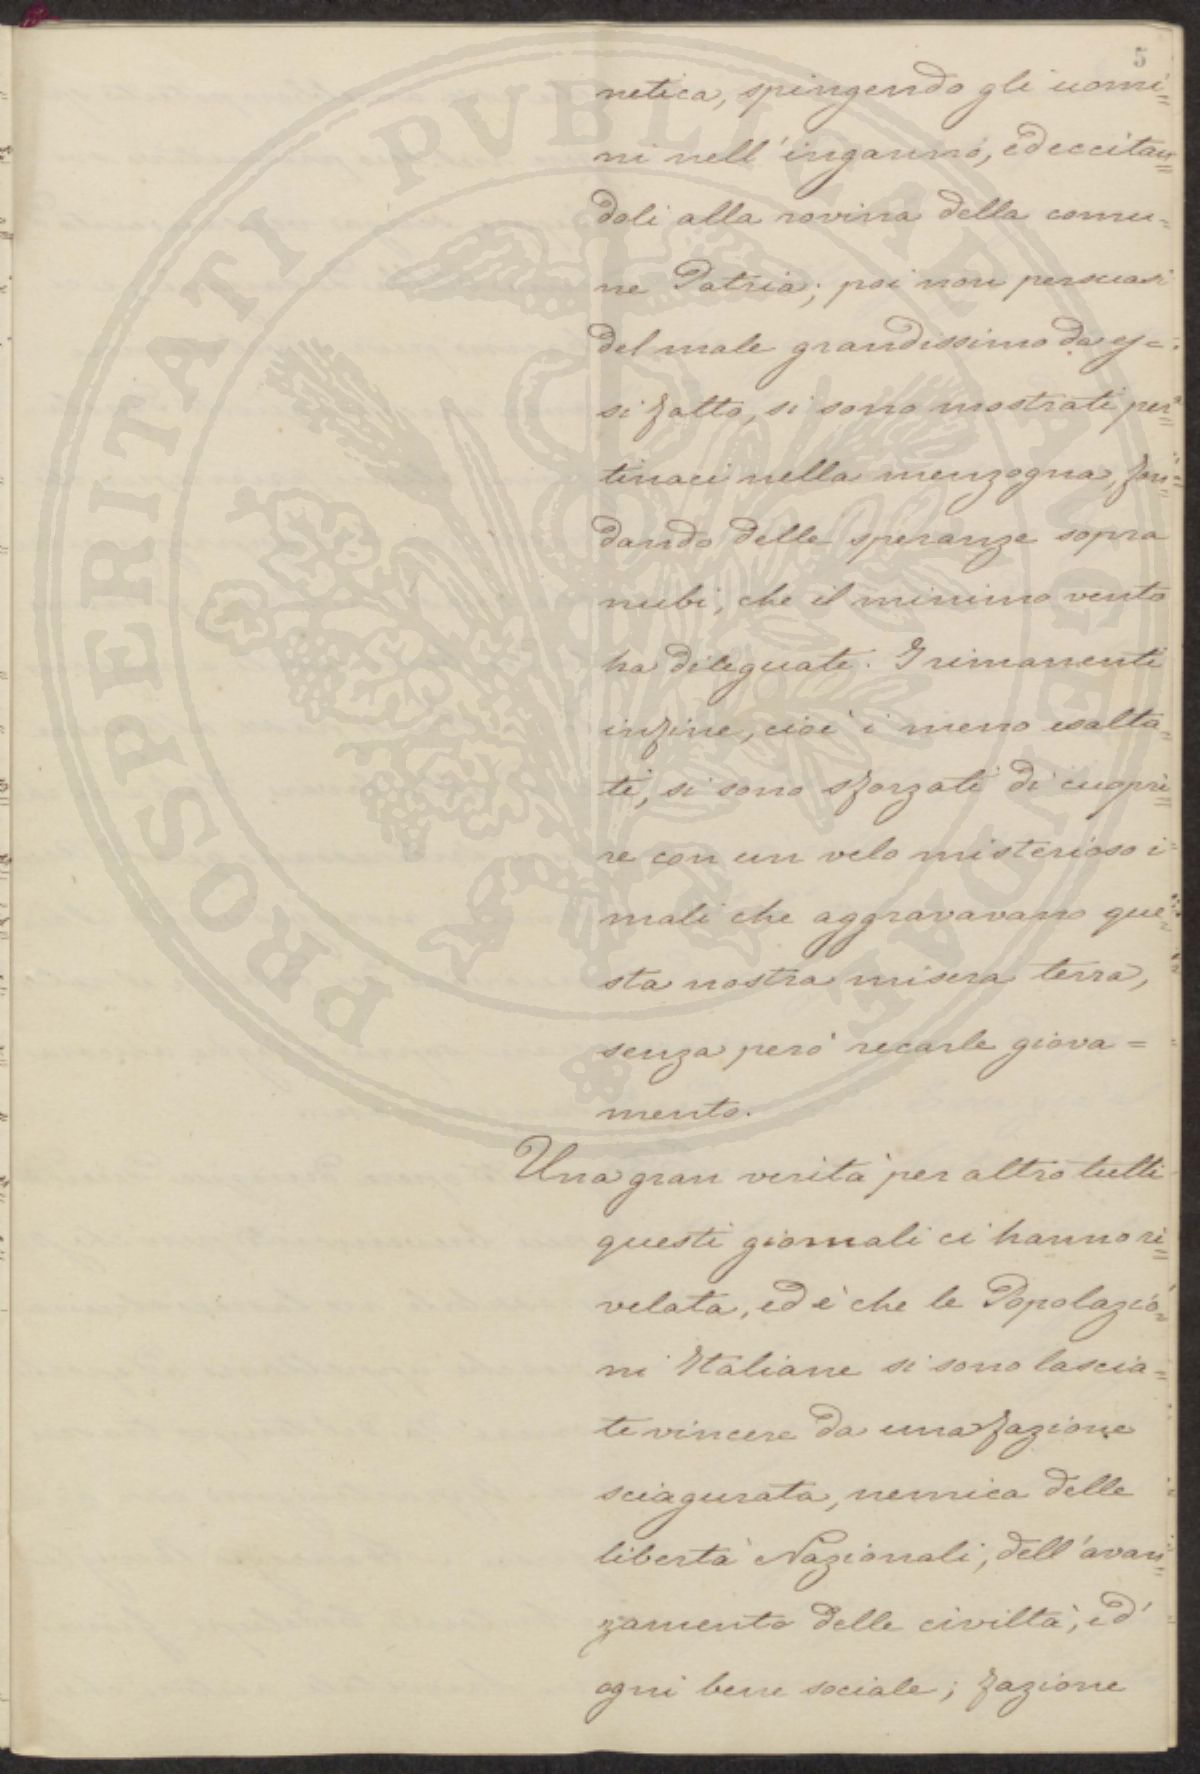 5
netica, spingendo gli uomi=
ni nell'inganno, ed eccitan=
doli alla rovina della comu=
ne Patria; poi non persuasi
del male grandissimo da es=
si fatto, si sono mostrati per=
tinaci nella menzogna, fon=
dando delle speranze sopra
nubi, che il minimo vento
ha dileguate. I rimanenti
infine, cioè i meno esalta=
ti, si sono sforzati di cuopri=
re con un velo misterioso i
mali che aggravavano que=
sta nostra misera terra,
senza però recarle giova=
mento.
Una gran verità per altro tutti
questi giornali ci hanno ri=
velata, ed è che le Popolazio=
ni Italiane si sono lascia=
te vincere da una fazione
sciagurata, nemica delle
libertà Nazionali, dell'avan=
zamento delle civiltà, ed'
ogni bene sociale; fazione
PROSPERITATI PVBLICAE AVGENDAE